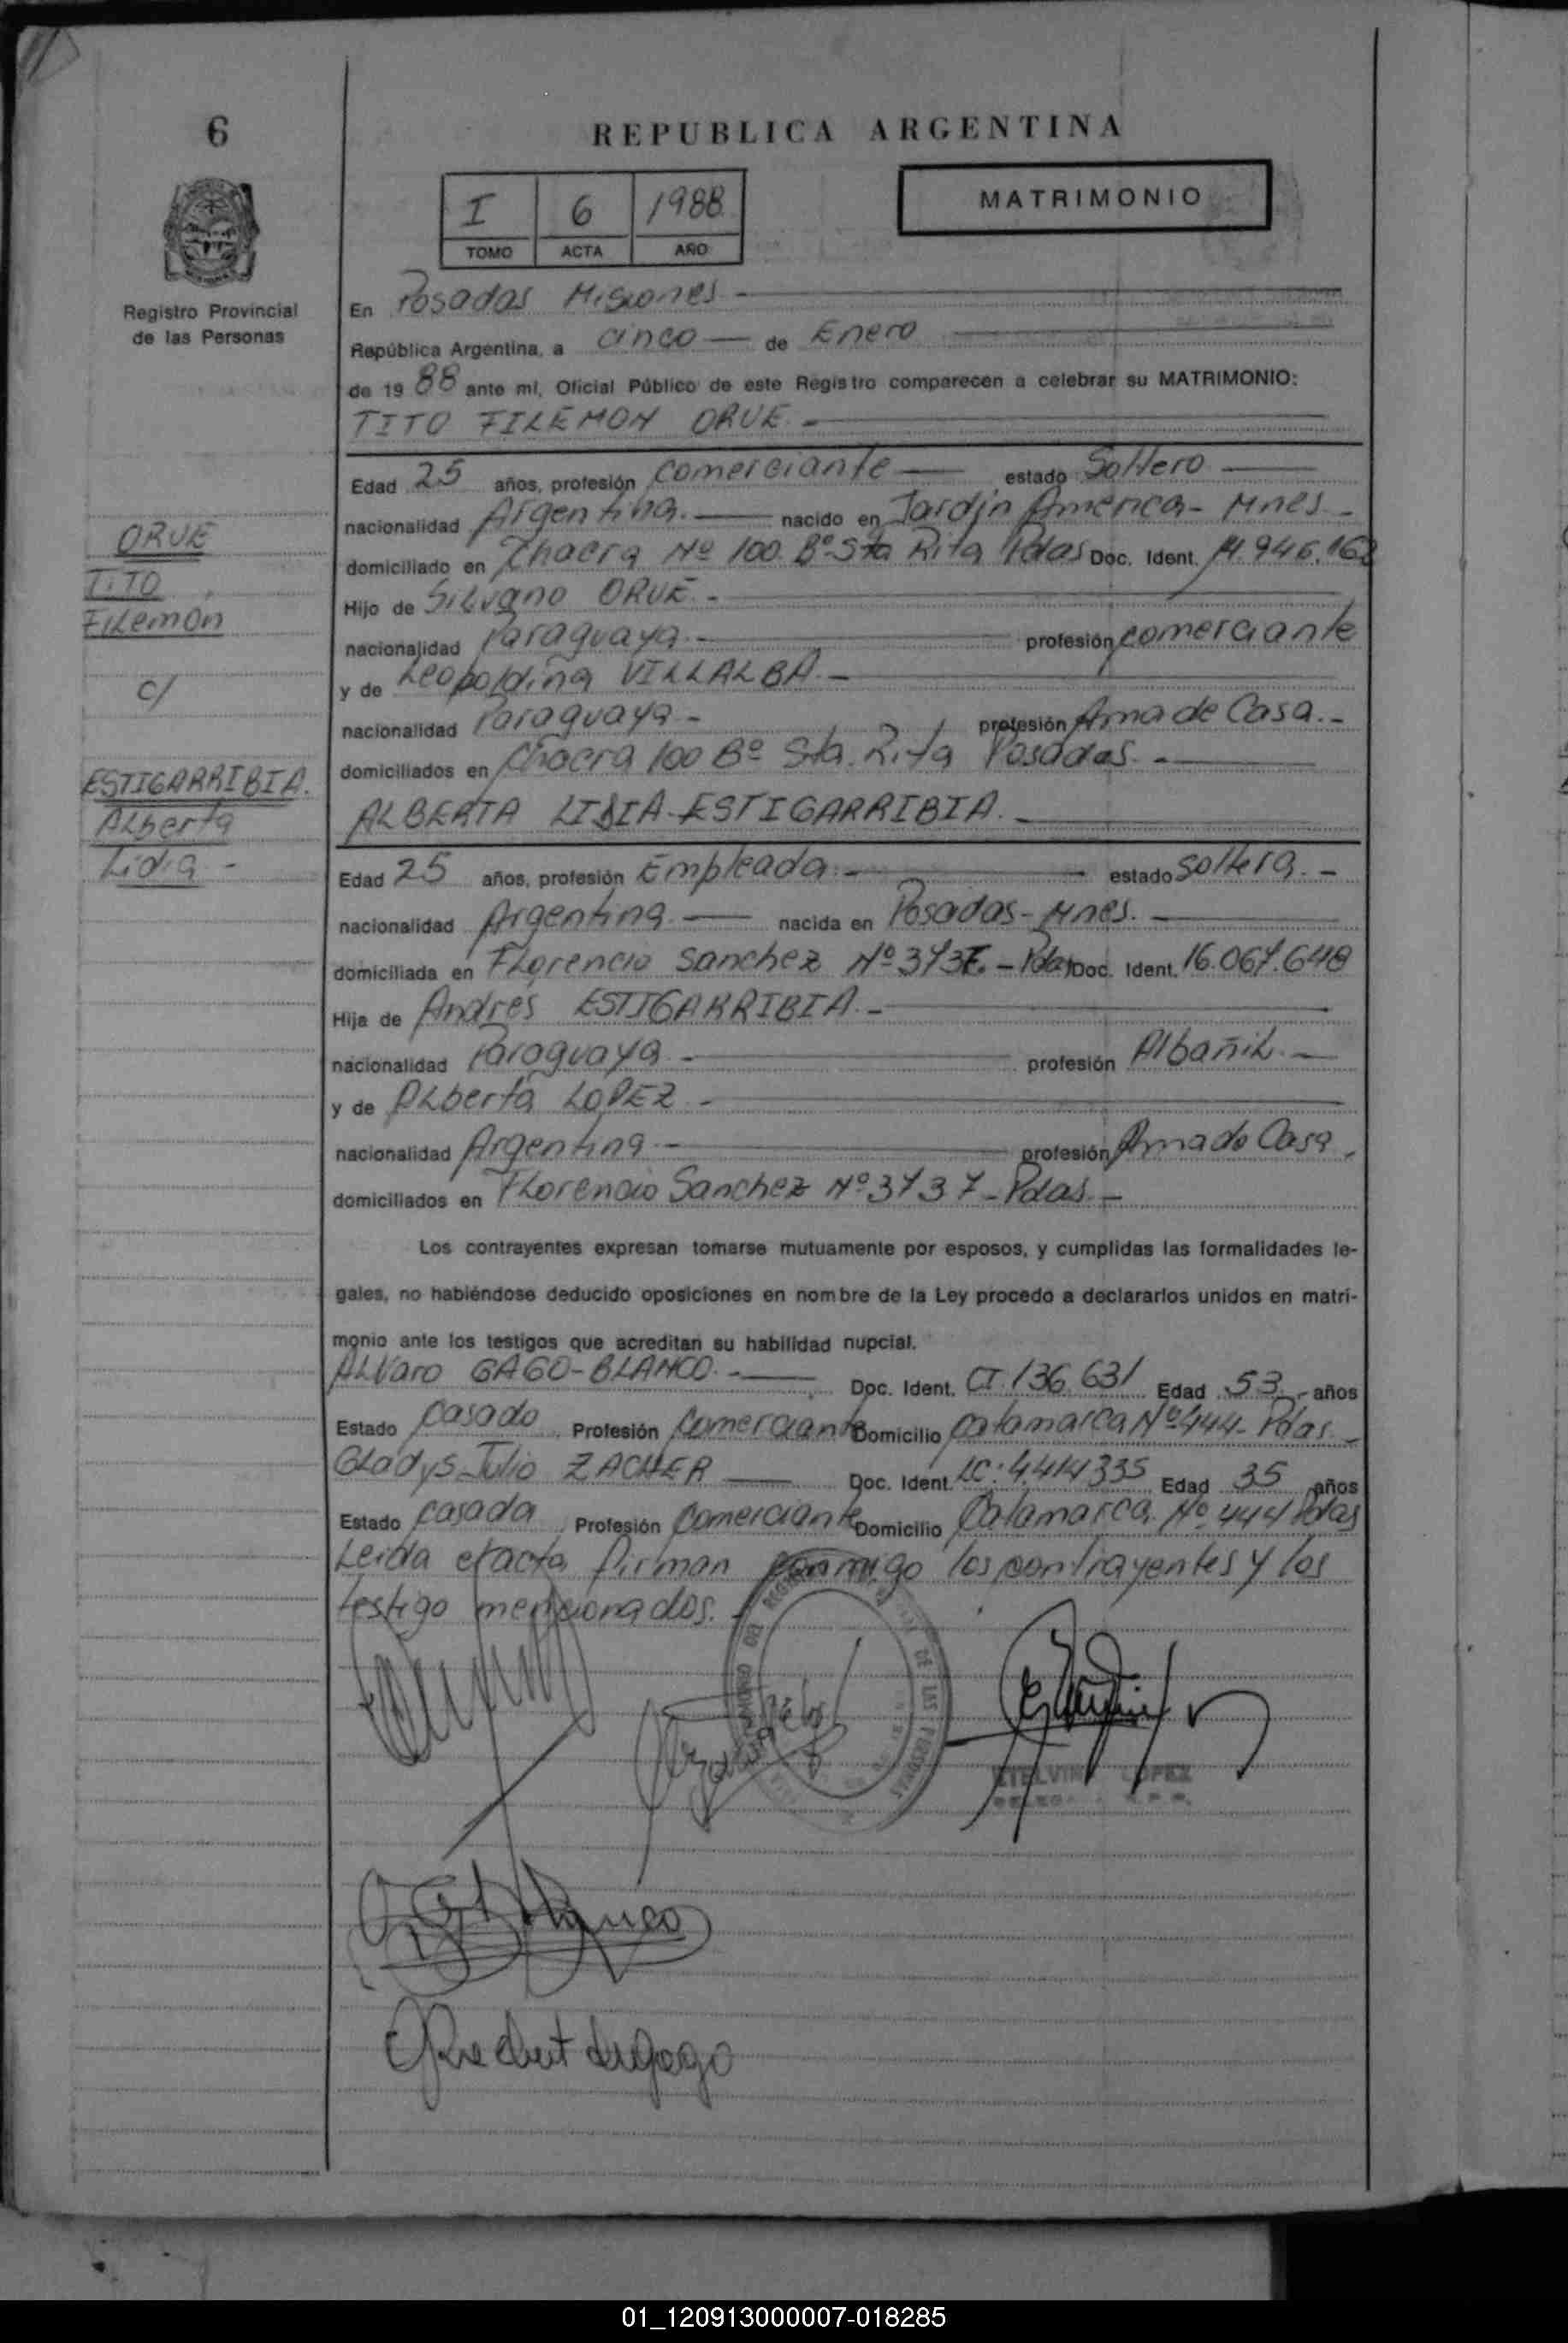 6
REPUBLICA ARGENTINA
I 6 1988
TOMO ACTA AÑO
MATRIMONIO
Registro Provincial
de las Personas
En Posadas Misiones -
República Argentina, a cinco — de Enero
de 1988 ante mí, Oficial Público de este Registro comparecen a celebrar su MATRIMONIO:
TITO FILEMON ORUE. -
Edad 25 años, profesión comerciante — estado Soltero —
nacionalidad Argentina. — nacido en Jardin America - Mnes -
domiciliado en Chacra Nº 100. Bº Sta Rita Pdas Doc. Ident. 14.946.162
Hijo de Silvano ORUE. -
nacionalidad Paraguaya. - profesión comerciante
y de Leopoldina VILLALBA. -
nacionalidad Paraguaya - profesión Ama de Casa. -
domiciliados en Chacra 100 Bº Sta. Rita Posadas. -
ALBERTA LIDIA - ESTIGARRIBIA. -
Edad 25 años, profesión Empleada. - estado soltera. -
nacionalidad Argentina. — nacida en Posadas - Mnes. -
domiciliada en Florencio Sanchez Nº 3737. - Pdas Doc. Ident. 16.067.648
Hija de Andres ESTIGARRIBIA. -
nacionalidad Paraguaya - profesión Albañil. -
y de Alberta LOPEZ -
nacionalidad Argentina - profesión Ama de Casa.
domiciliados en Florencio Sanchez Nº 3737 - Pdas. -
Los contrayentes expresan tomarse mutuamente por esposos, y cumplidas las formalidades le-
gales, no habiéndose deducido oposiciones en nombre de la Ley procedo a declararlos unidos en matri-
monio ante los testigos que acreditan su habilidad nupcial.
Alvaro GAGO - BLANCO. - Doc. Ident. CI. 136.631 Edad 53 años
Estado casado Profesión Comerciante Domicilio Catamarca Nº 444 - Pdas. -
Gladys Julio ZACHER — Doc. Ident. LC: 4.414335 Edad 35 años
Estado casada Profesión Comerciante Domicilio Catamarca Nº 444 Pdas
Leida el acta firman conmigo los contrayentes y los
testigo mencionados. -
ORUE
TITO
Filemon
c/
ESTIGARRIBIA.
Alberta
Lidia -
DE LAS PERSONAS
LOPEZ
01_120913000007-018285